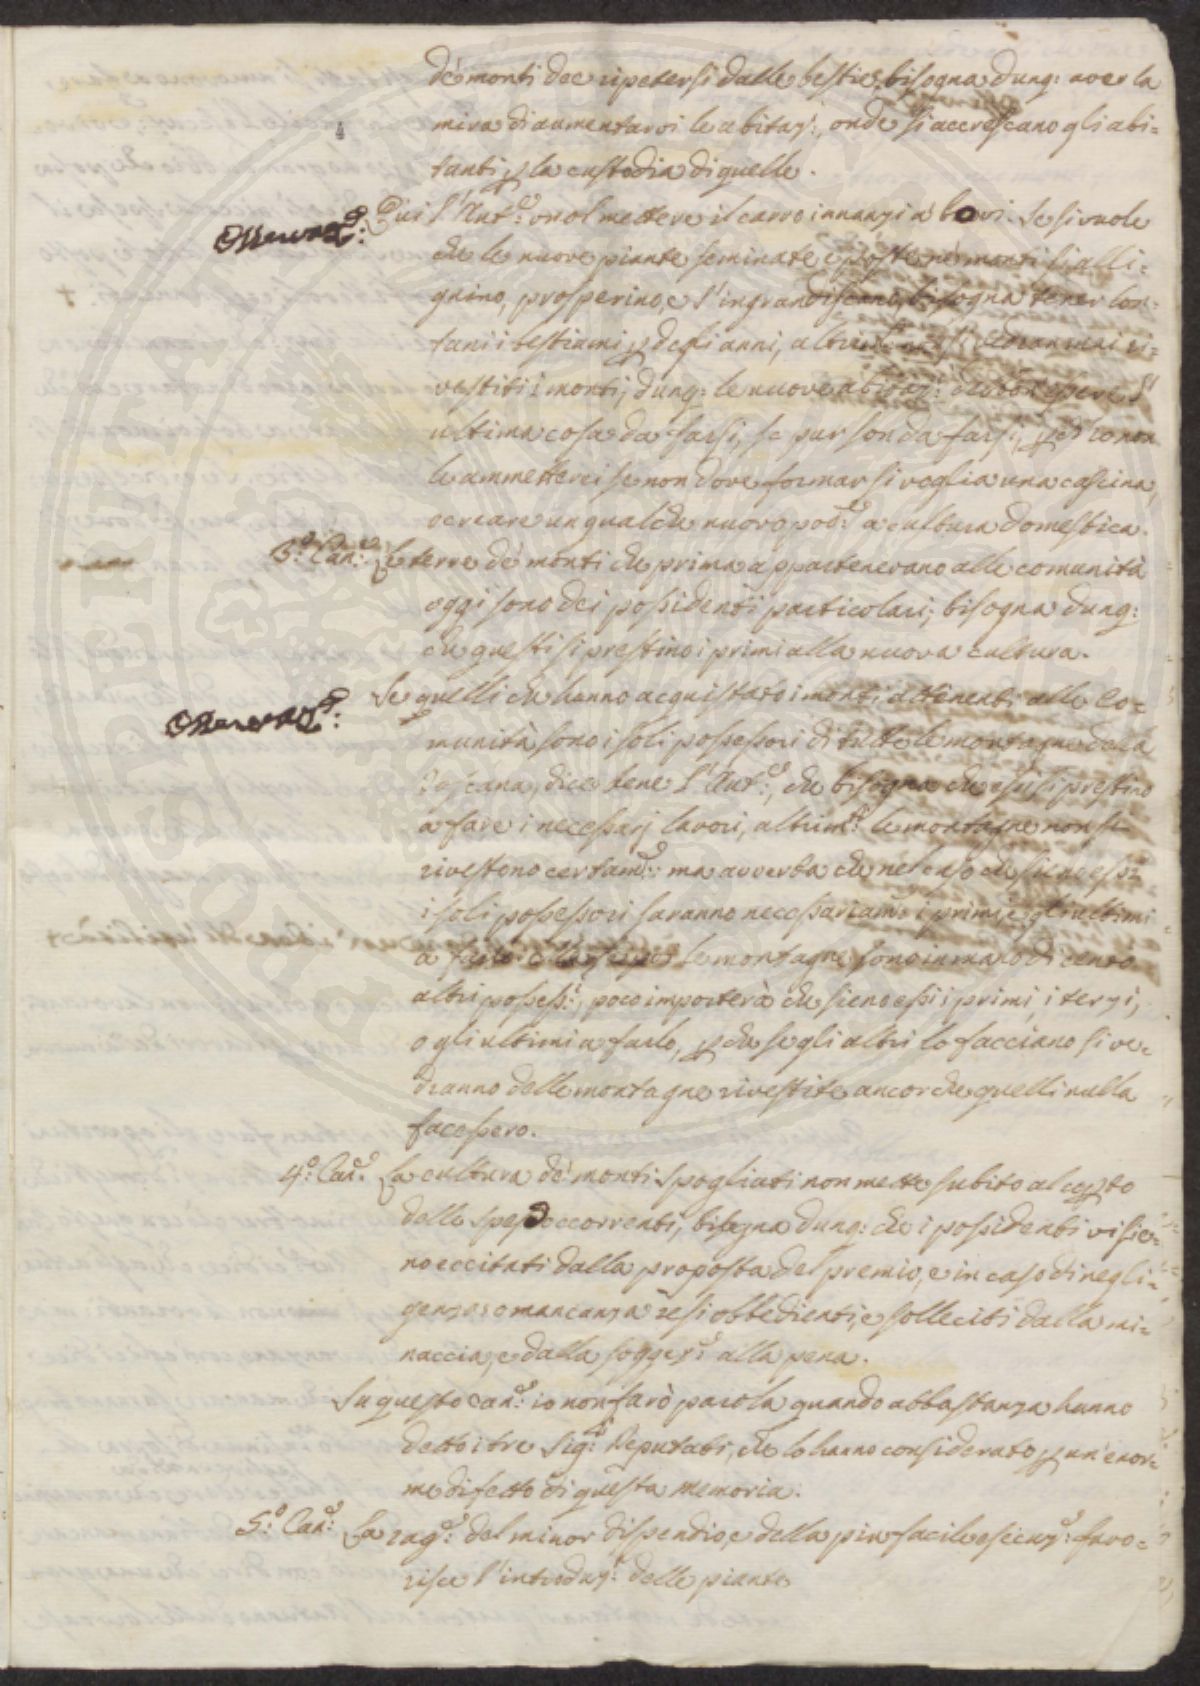 de' monti dee ripetersi dalle bestie, bisogna dunq: aver la
mira di aumentarvi le abitaz:, onde si accrescano gli abi=
tanti p la custodia di quelle.
Osservaz.e: Qui l'Aut.e vuol mettere il carro innanzi a' bovi. Se si vuole
che le nuove piante seminate e poste ne' monti si alli=
gnino, prosperino, e s'ingrandiscano, bisogna tener lon=
tani i bestiami p degli anni, altrim.ti non si vedran mai ri=
vestiti i monti; dunq: le nuove abitaz: debbon essere l'
ultima cosa da farsi, se pur son da farsi, p ed io non
le ammetterei se non dove formar si voglia una cascina,
o creare un qualche nuovo pod.e a cultura domestica.
3.o Can.e: Le terre de' monti che prima appartenevano alle comunità
oggi sono dei possidenti particolari; bisogna dunq:
che questi si prestino i primi alla nuova cultura.
Osservaz.e: Se quelli che hanno acquistato i monti attenenti alle Co=
munità sono i soli possessori di tutte le montagne della
Toscana, dice bene l'Aut.e, che bisogna che essi si prestino
a fare i necessarj lavori, altrim.ti le montagne non si
rivestono certam.e: ma avverta che nel caso che sieno essi
i soli possessori saranno necessariam.e i primi e gli ultimi
a farlo: le montagne sono in mano di cento
altri possess.i, poco importerà che sieno essi i primi, i terzi,
o gli ultimi a farlo, p che se gli altri lo facciano si ve=
dranno delle montagne rivestite ancorche quelli nulla
facessero.
4.o Can.e La cultura de' monti spogliati non mette subito al coperto
delle spese occorrenti, bisogna dunq: che i possidenti vi sie=
no eccitati dalla proposta del premio, e in caso di negli=
genza, o mancanza resi obbedienti, e solleciti dalla mi=
naccia, e dalla soggez.e alla pena.
Su questo Can.e io non farò parola quando abbastanza hanno
detto i tre Sig.ri Deputati, che lo hanno considerato p un'enor=
me difetto di questa Memoria.
5.o Can.e: La rag.e del minor dispendio, e della più facile esecuz.e: favo=
risce l'introduz.e delle piante